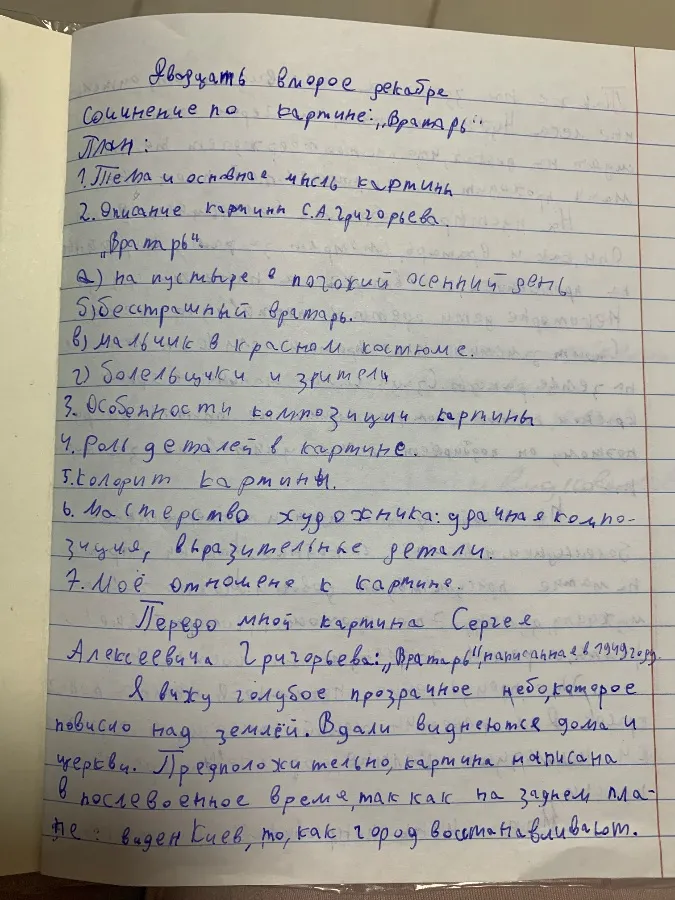 Двадцать второе декабре
Сочинение по картине: „Вратарь"
План:
1. Тема и основная мысль картины
2. Описание картины С.А. Григорьева.
„Вратарь".
а) на пустыре в погожий осенний день
б) бесстрашный вратарь.
в) мальчик в красном костюме.
г) болельщики и зрители
3. Особенности композиции картины
4. Роль деталей в картине.
5. Колорит картины.
6. Мастерство художника: удачная компо-
зиция, выразительные детали.
7. Моё отношене к картине.
Передо мной картина Сергея
Алексеевича Григорьева: „Вратарь", написанная в 1949 году.
Я вижу голубое прозрачное небо, которое
повисло над землёй. Вдали виднеются дома и
церкви. Предположительно, картина написана
в послевоенное время, так как на заднем пла-
не: виден Киев, то, как город восстанавливают.